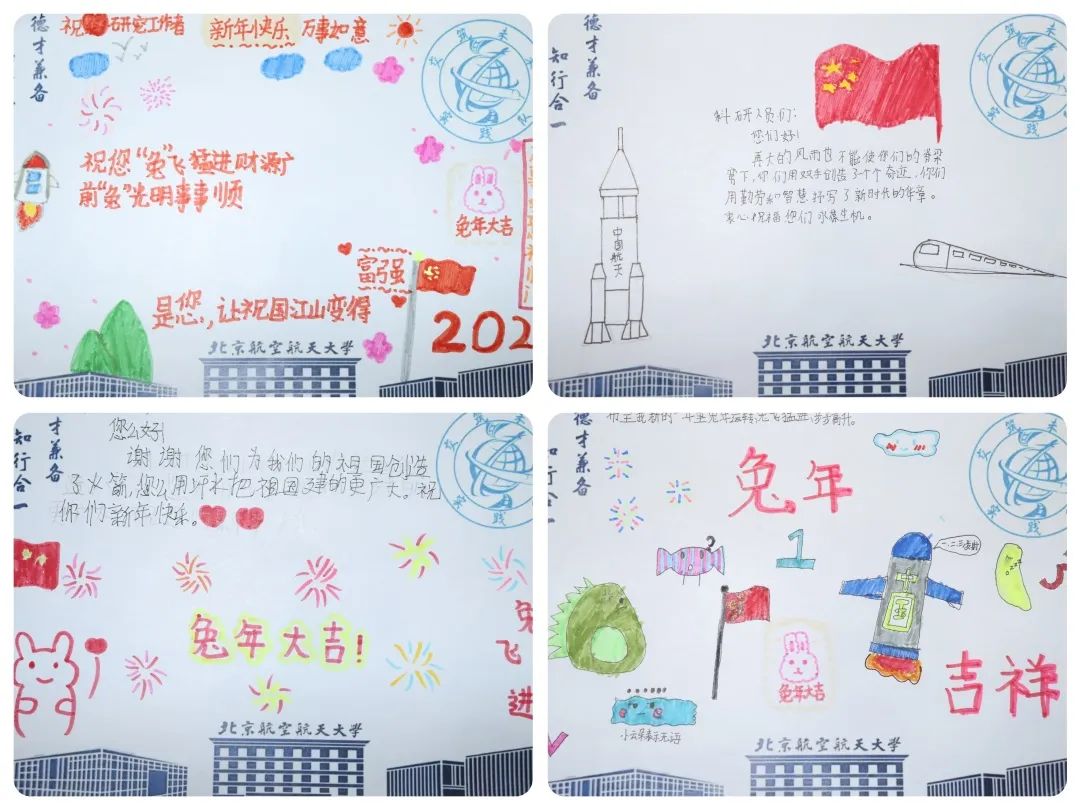 德才兼备
研究工作者
新年快乐 万事如意
祝您“兔”飞猛进财源广
前“兔”光明事事顺
兔年大吉
富强
是您,让祖国江山变得
202
北京航空航天大学
德才兼备
知行合一
科研人员们:
您们好!
再大的风雨也不能使你们的脊梁
弯下,你们用双手创造了个个奇迹,你们
用勤劳和智慧抒写了新时代的华章。
衷心祝福您们永葆生机。
中国航天
北京航空航天大学
德才兼备
知行合一
您么好!
谢谢您们为我们的祖国创造
了火箭,您么用汗水把祖国建的更广大。祝
你们新年快乐。
兔年大吉!
兔
飞
进
北京航空航天大学
德才兼备
知行合一
兔年
1
一、二、三发射
中国
兔年大吉
吉祥
小云朵表示无语
北京航空航天大学